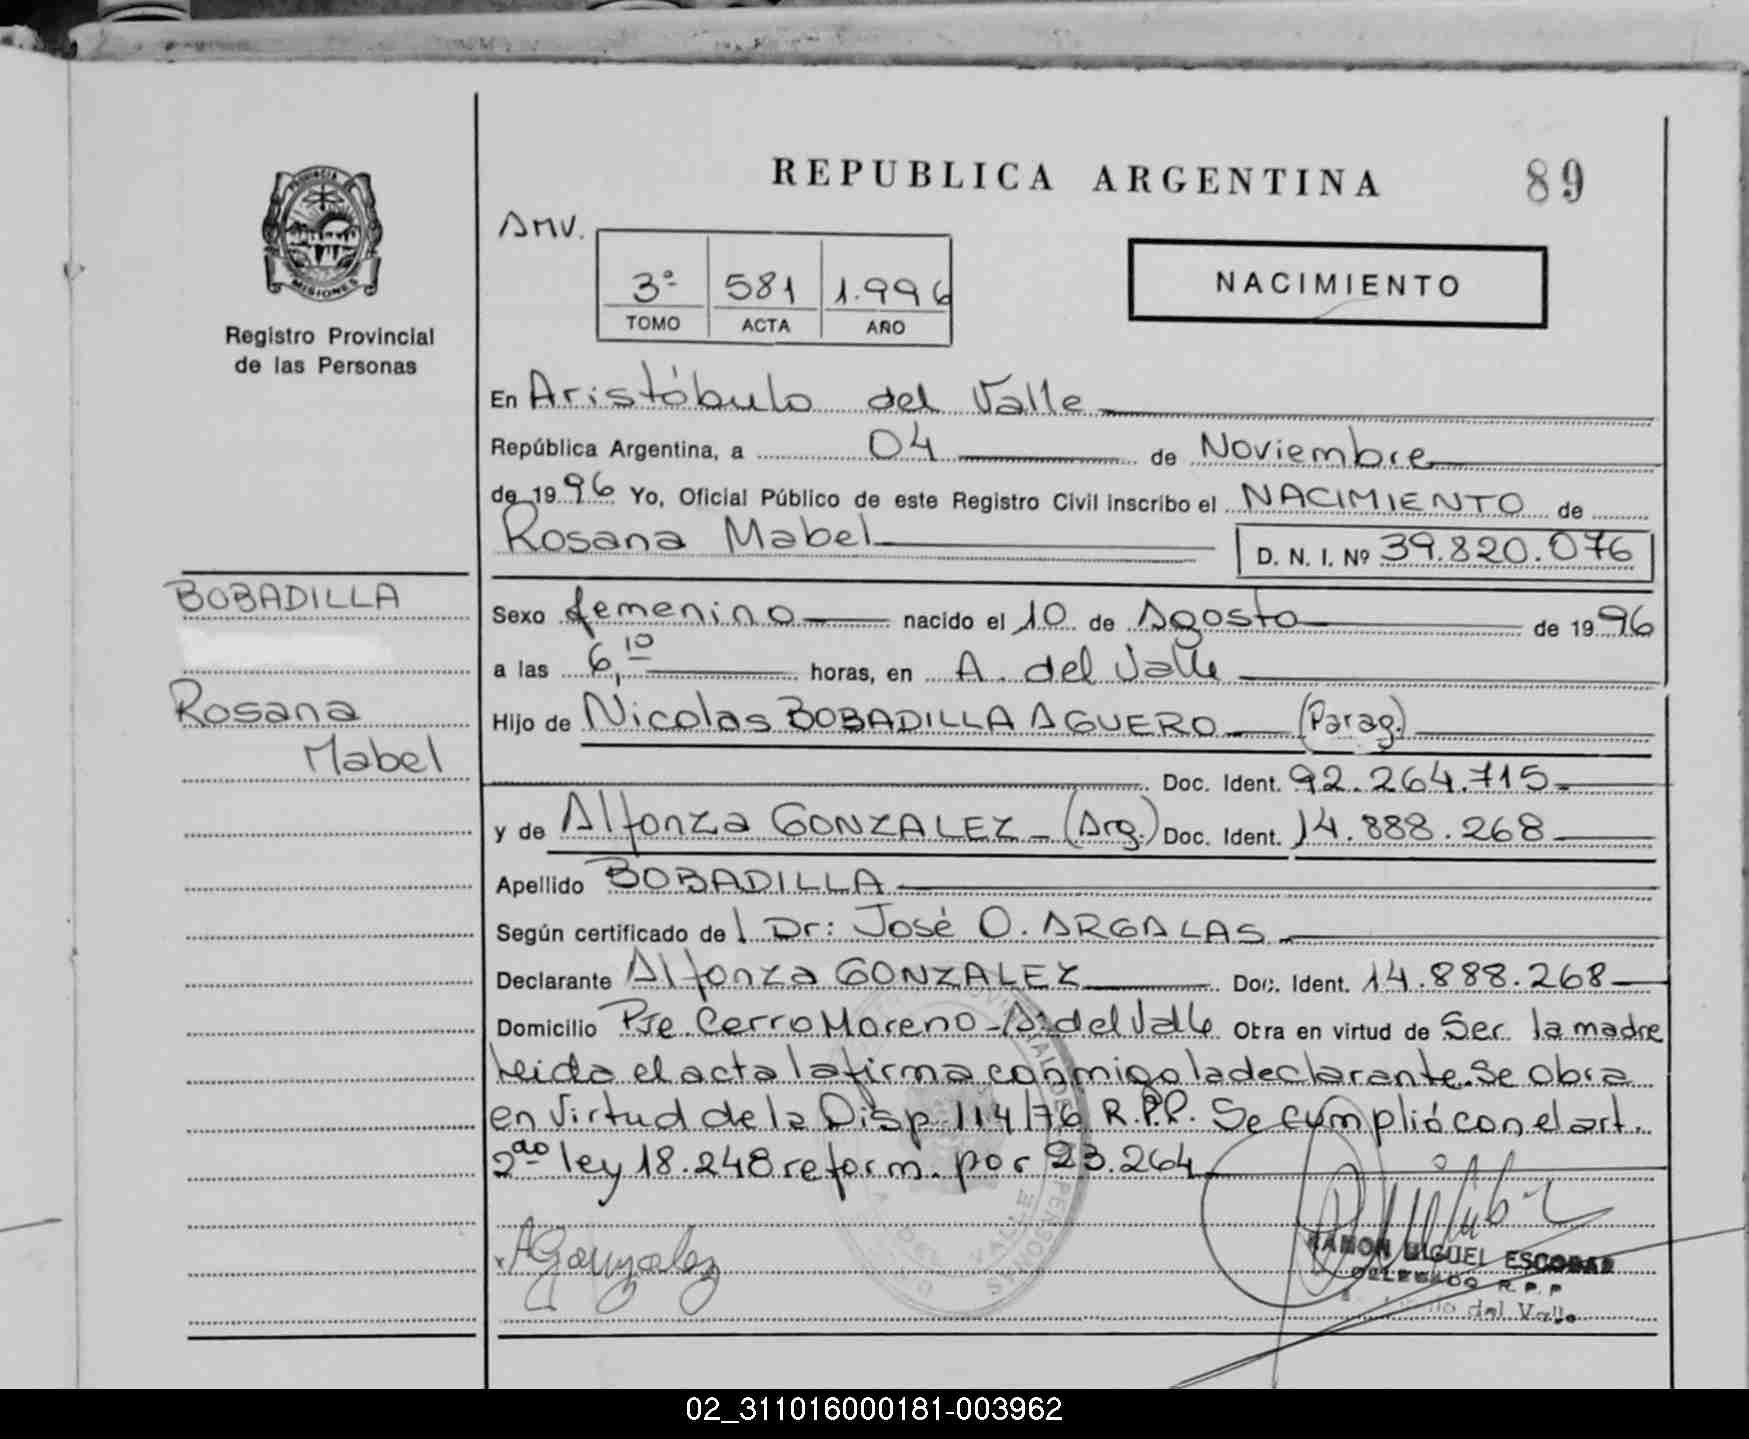 REPUBLICA ARGENTINA
89
PROVINCIA DE
MISIONES
Registro Provincial
de las Personas
AMV.
3º 581 1.996
TOMO ACTA AÑO
NACIMIENTO
En Aristóbulo del Valle
República Argentina, a 04 de Noviembre
de 1996 Yo, Oficial Público de este Registro Civil inscribo el NACIMIENTO de
Rosana Mabel D. N. I. Nº 39.820.076
BOBADILLA
Rosana
Mabel
Sexo femenino nacido el 10 de Agosto de 1996
a las 6,10 horas, en A. del Valle
Hijo de Nicolas BOBADILLA AGUERO (Parag.)
Doc. Ident. 92.264.715
y de Alfonza GONZALEZ - (Arg.) Doc. Ident. 14.888.268
Apellido BOBADILLA
Según certificado de l Dr: José O. ARGALAS
Declarante Alfonza GONZALEZ Doc. Ident. 14.888.268
Domicilio Pje Cerro Moreno - A. del Valle Obra en virtud de Ser la madre
Leida el acta la firma conmigo la declarante. Se obra
en virtud de la Disp 114/76 R.P.P. Se cumplió con el art.
2do ley 18.248 reform. por 23.264
AGonzalez
RAMON MIGUEL ESCOBAR
DELEGADO R.P.P
del Valle
02_311016000181-003962